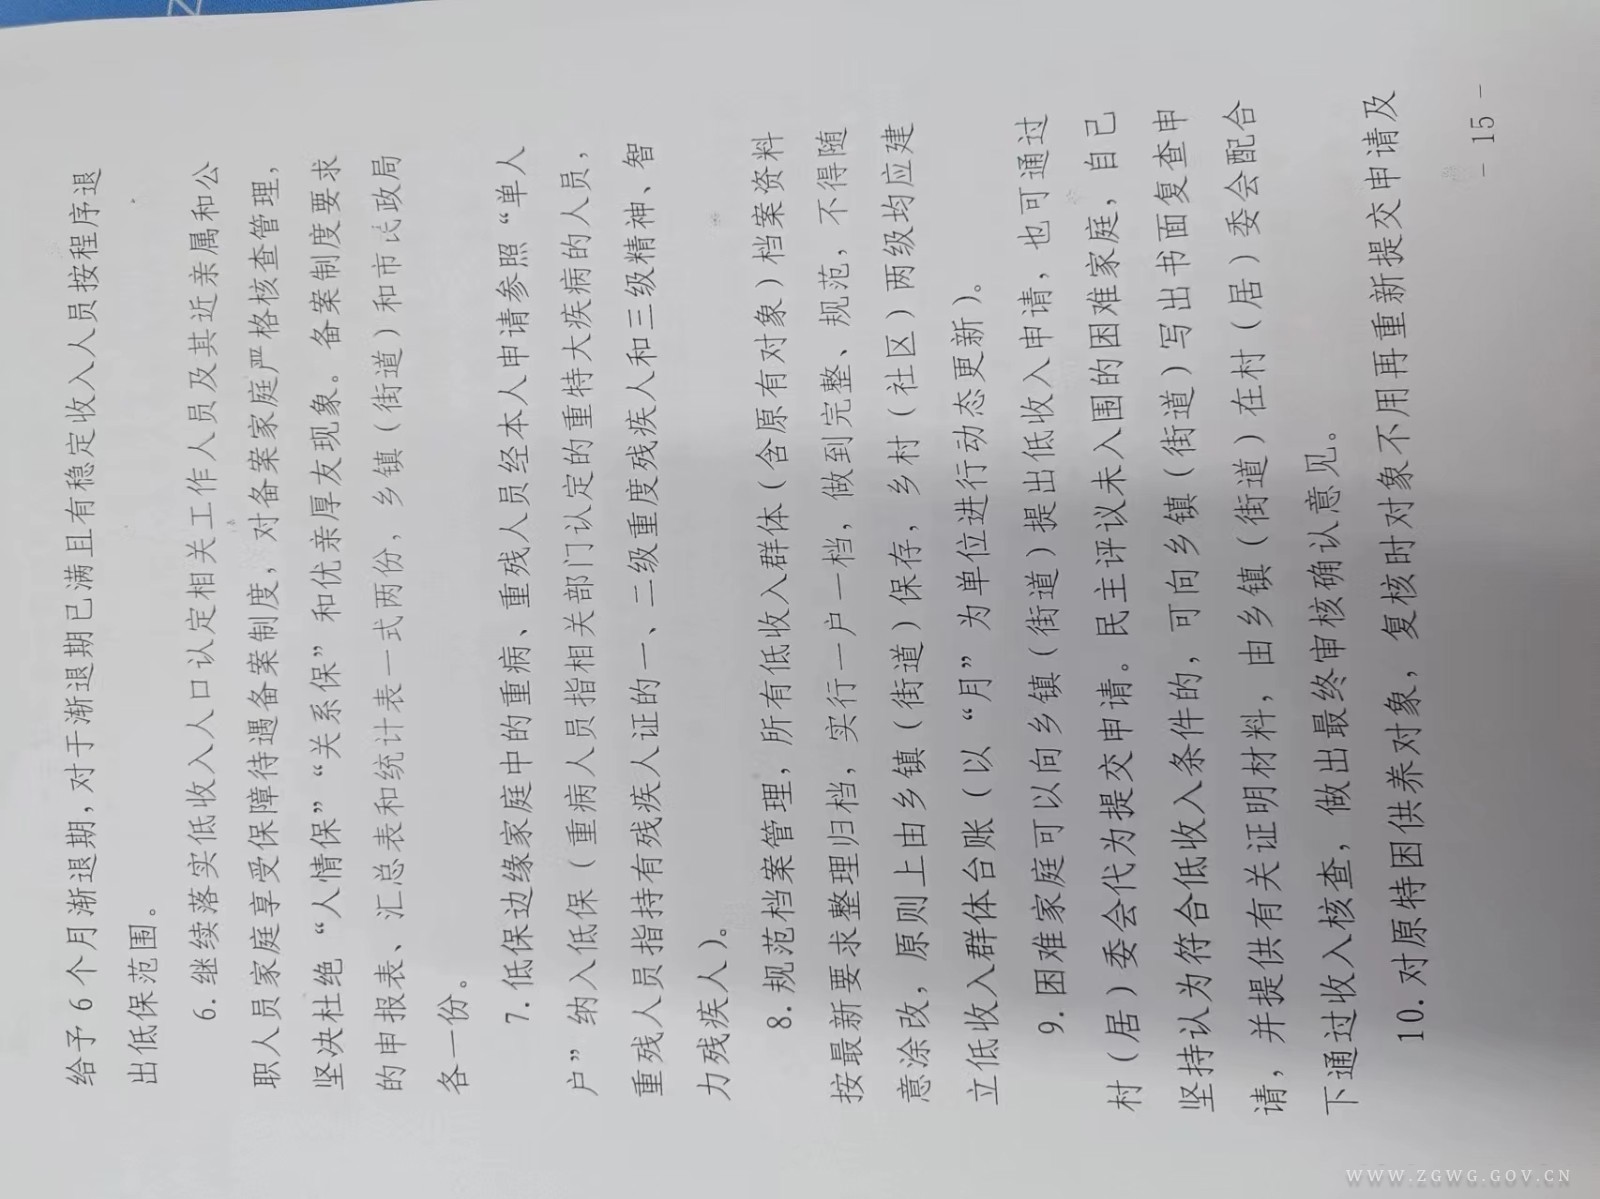 给予6个月渐退期,对于渐退期已满且有稳定收入人员按程序退
出低保范围。
6.继续落实低收入人口认定相关工作人员及其近亲属和公
职人员家庭享受保障待遇备案制度，对备案家庭严格核查管理，
坚决杜绝“人情保”“关系保”和优亲厚友现象。备案制度要求
的申报表、汇总表和统计表一式两份，乡镇（街道）和市民政局
各一份。
7.低保边缘家庭中的重病、重残人员经本人申请参照“单人
户”纳入低保（重病人员指相关部门认定的重特大疾病的人员，
重残人员指持有残疾人证的一、二级重度残疾人和三级精神、智
力残疾人）。
8.规范档案管理，所有低收入群体（含原有对象）档案资料
按最新要求整理归档，实行一户一档，做到完整、规范，不得随
意涂改，原则上由乡镇（街道）保存，乡村（社区）两级均应建
立低收入群体台账（以“月”为单位进行动态更新）。
9.困难家庭可以向乡镇（街道）提出低收入申请，也可通过
村（居）委会代为提交申请。民主评议未入围的困难家庭，自己
坚持认为符合低收入条件的，可向乡镇（街道）写出书面复查申
请，并提供有关证明材料，由乡镇（街道）在村（居）委会配合
下通过收入核查，做出最终审核确认意见。
10.对原特困供养对象，复核时对象不用再重新提交申请及
- 15 -
WWW.ZGWG.GOV.CN